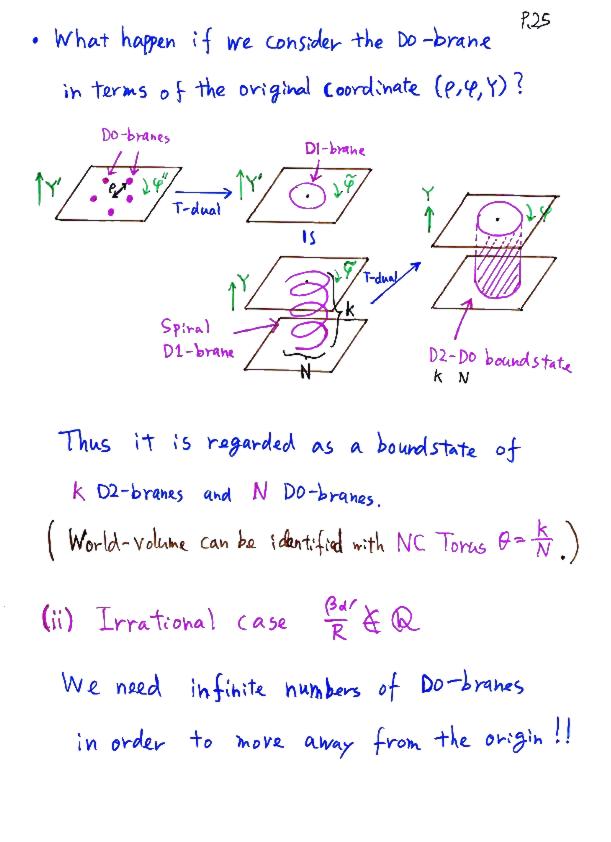 P.25
• What happen if we consider the D0-brane
in terms of the original coordinate (ρ,φ,Y)?
D0-branes
D1-brane
Y"
ρ
φ"
T-dual
Y"
φ̃
Y
φ
IS
Y
φ̃
T-dual
k
Spiral
D1-brane
N
D2-D0 boundstate
k N
Thus it is regarded as a boundstate of
k D2-branes and N D0-branes.
(World-volume can be identified with NC Torus θ=k/N.)
(ii) Irrational case βα'/R ∉ Q
We need infinite numbers of D0-branes
in order to move away from the origin!!